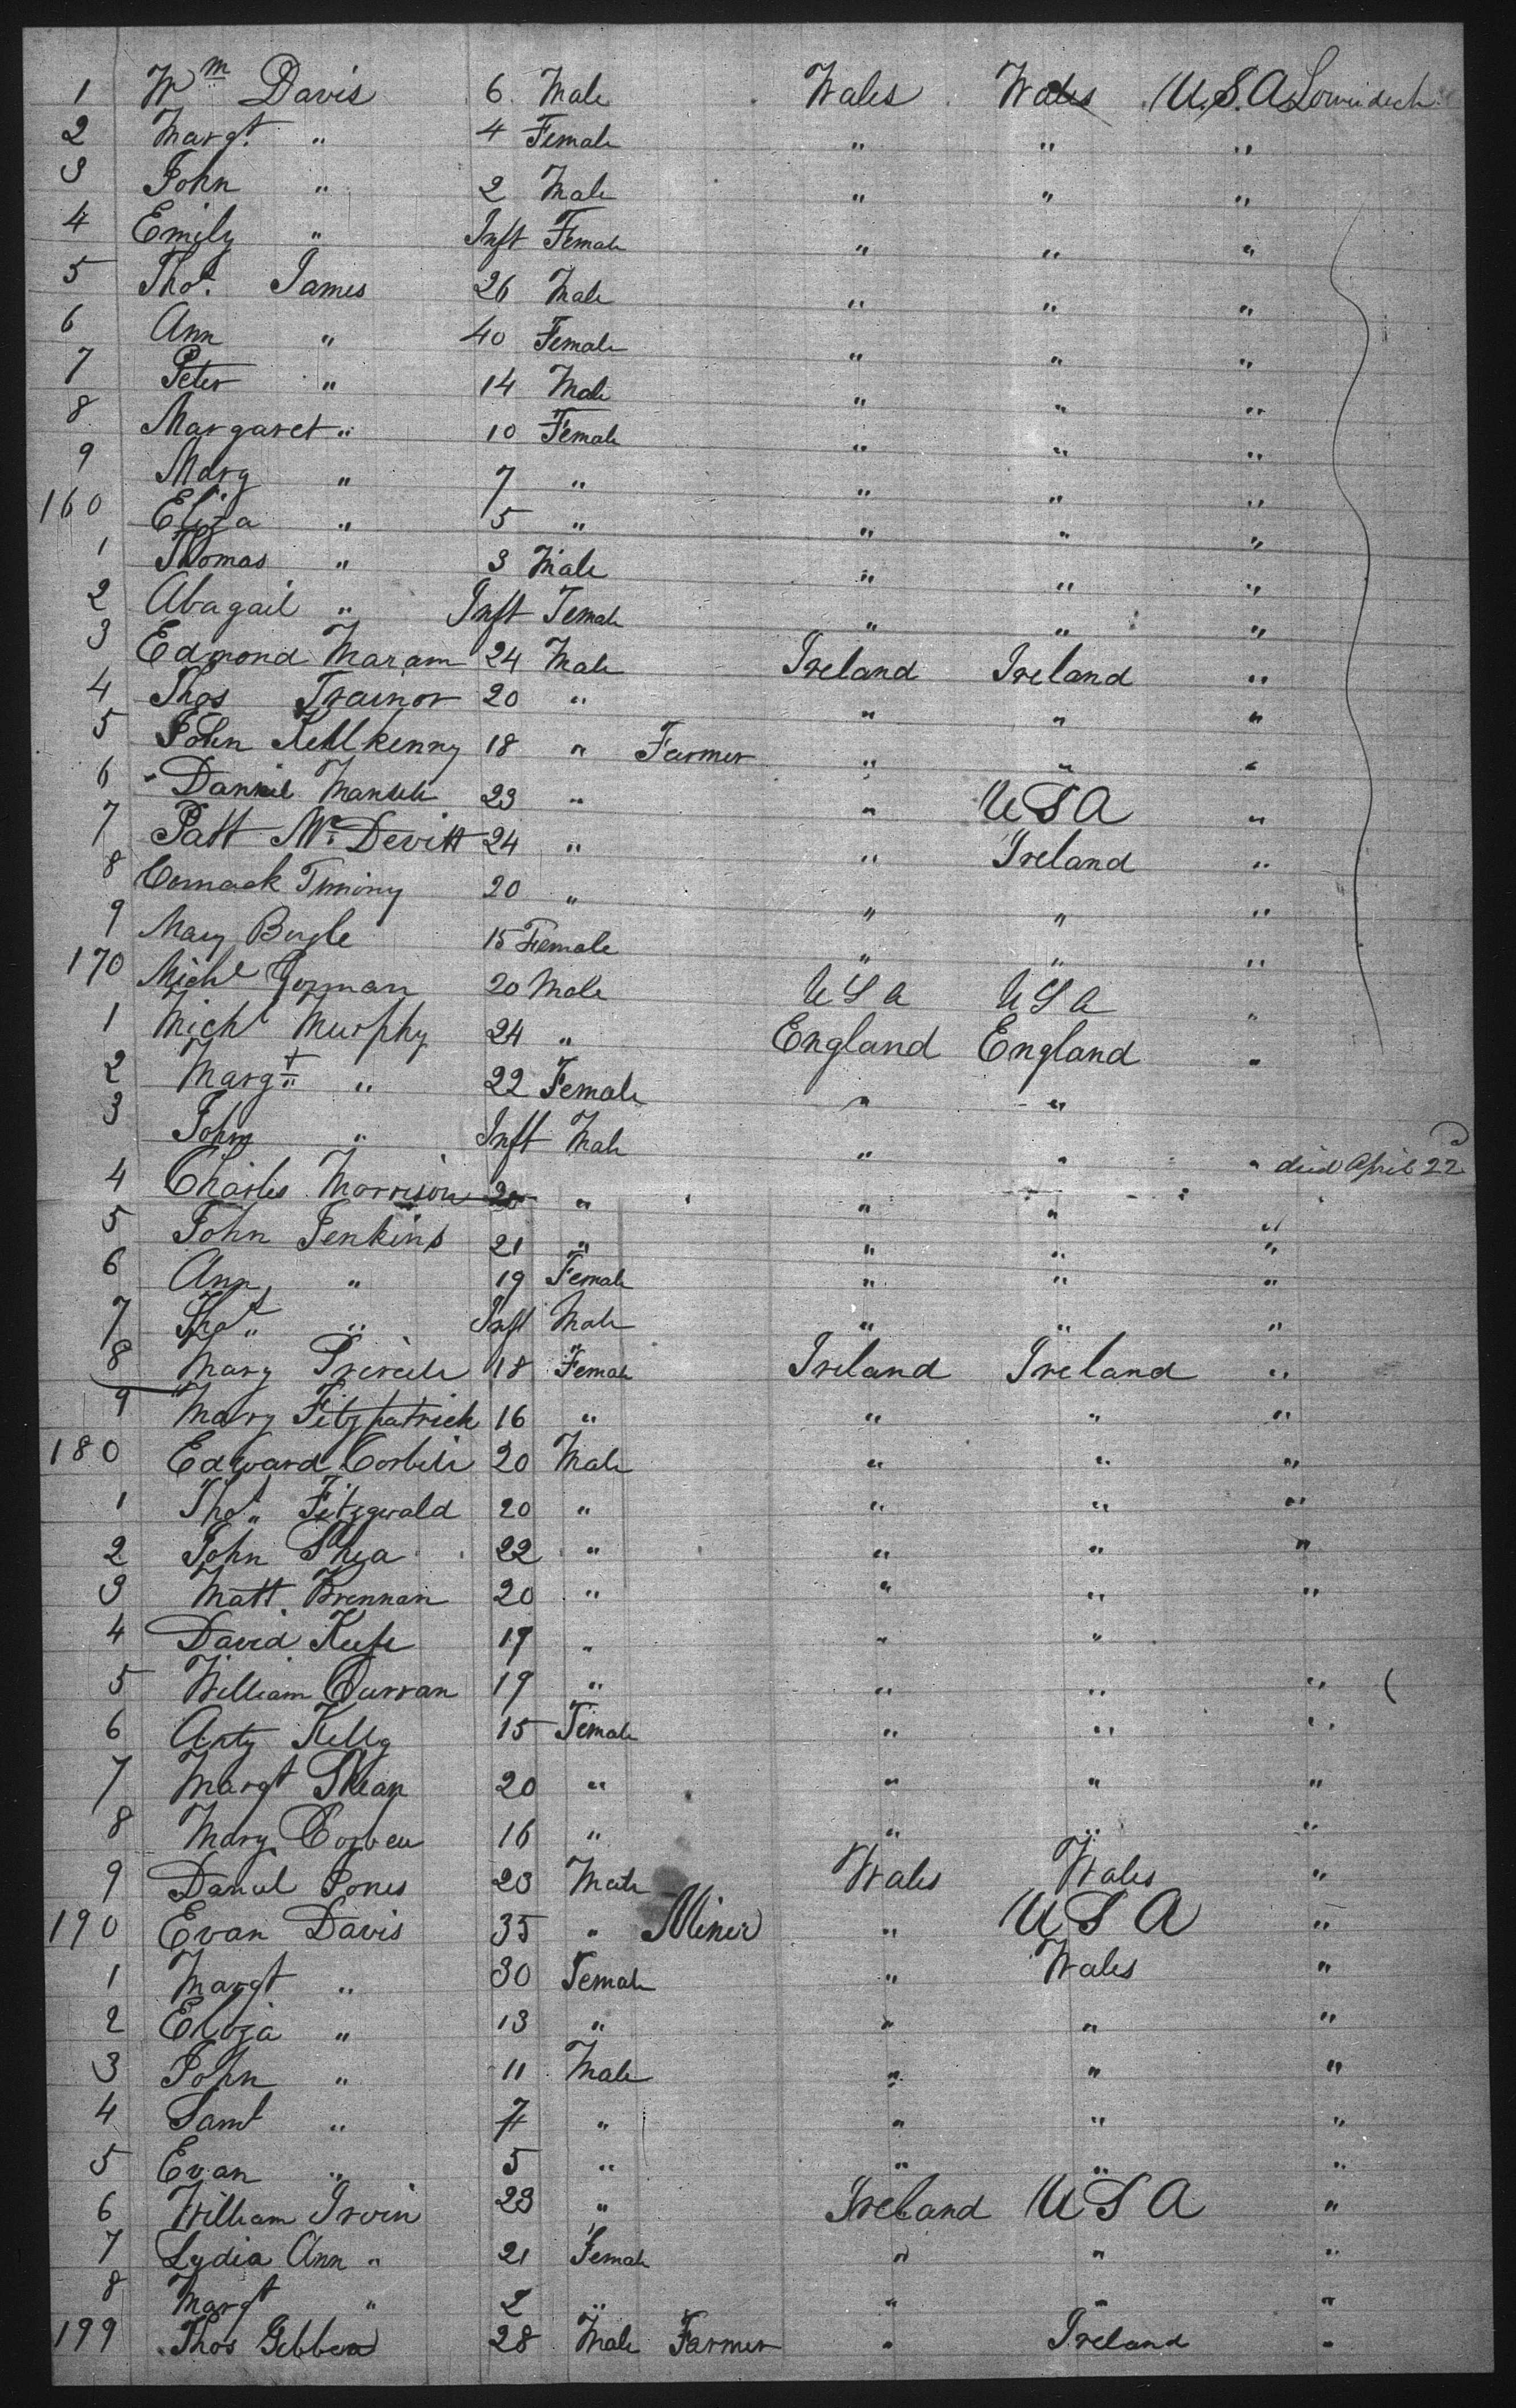 1 Wm Davis 6 Male Wales Wales U.S.A
2 Margt. " 4 Female " " "
3 John " 2 Male " " "
4 Emily " Inft Female " " "
5 Thos. James 26 Male " " "
6 Ann " 40 Female " " "
7 Peter " 14 Male " " "
8 Margaret " 10 Female " " "
9 Mary " 7 " " " "
160 Eliza " 5 " " " "
1 Thomas " 3 Male " " "
2 Abagail " Inft Female " " "
3 Edmond Maram 24 Male Ireland Ireland "
4 Thos Trainor 20 " " " "
5 John Killkenny 18 " Farmer " " "
6 Daniel 23 " " USA "
7 Patt Mc. Devitt 24 " " Ireland "
8 Cormack Timiny 20 " " " "
9 Mary Bogle 15 Female " " "
170 Michl Gorman 20 Male USA USA "
1 Michl Murphy 24 " England England "
2 Margt " 22 Female " "
3 John " Inft Male " " " died April 22d
4 Charles Morrison 20 " " " "
5 John Jenkins 21 " " " "
6 Ann " 19 Female " " "
7 Thos " Inft Male " " "
8 Mary 18 Female Ireland Ireland "
9 Mary Fitzpatrick 16 " " " "
180 Edward 20 Male " " "
1 Thos Fitzgerald 20 " " " "
2 John Shea 22 " " " "
3 Matt. Brennan 20 " " " "
4 David Keefe 17 " " "
5 William Curran 19 " " " "
6 Anty Kelly 15 Female " " "
7 Margt Shean 20 " " " "
8 Mary 16 " " " "
9 Daniel Jones 23 Male Wales Wales "
190 Evan Davis 35 " Miner " USA "
1 Margt " 30 Female " Wales "
2 Eliza " 13 " " " "
3 John " 11 Male " " "
4 Saml " 7 " " " "
5 Evan " 5 " " " "
6 William Irvin 23 " Ireland USA "
7 Lydia Ann " 21 Female " " "
8 Margt " 2 " " " "
199 Thos Gibbon 28 Male Farmer " Ireland "